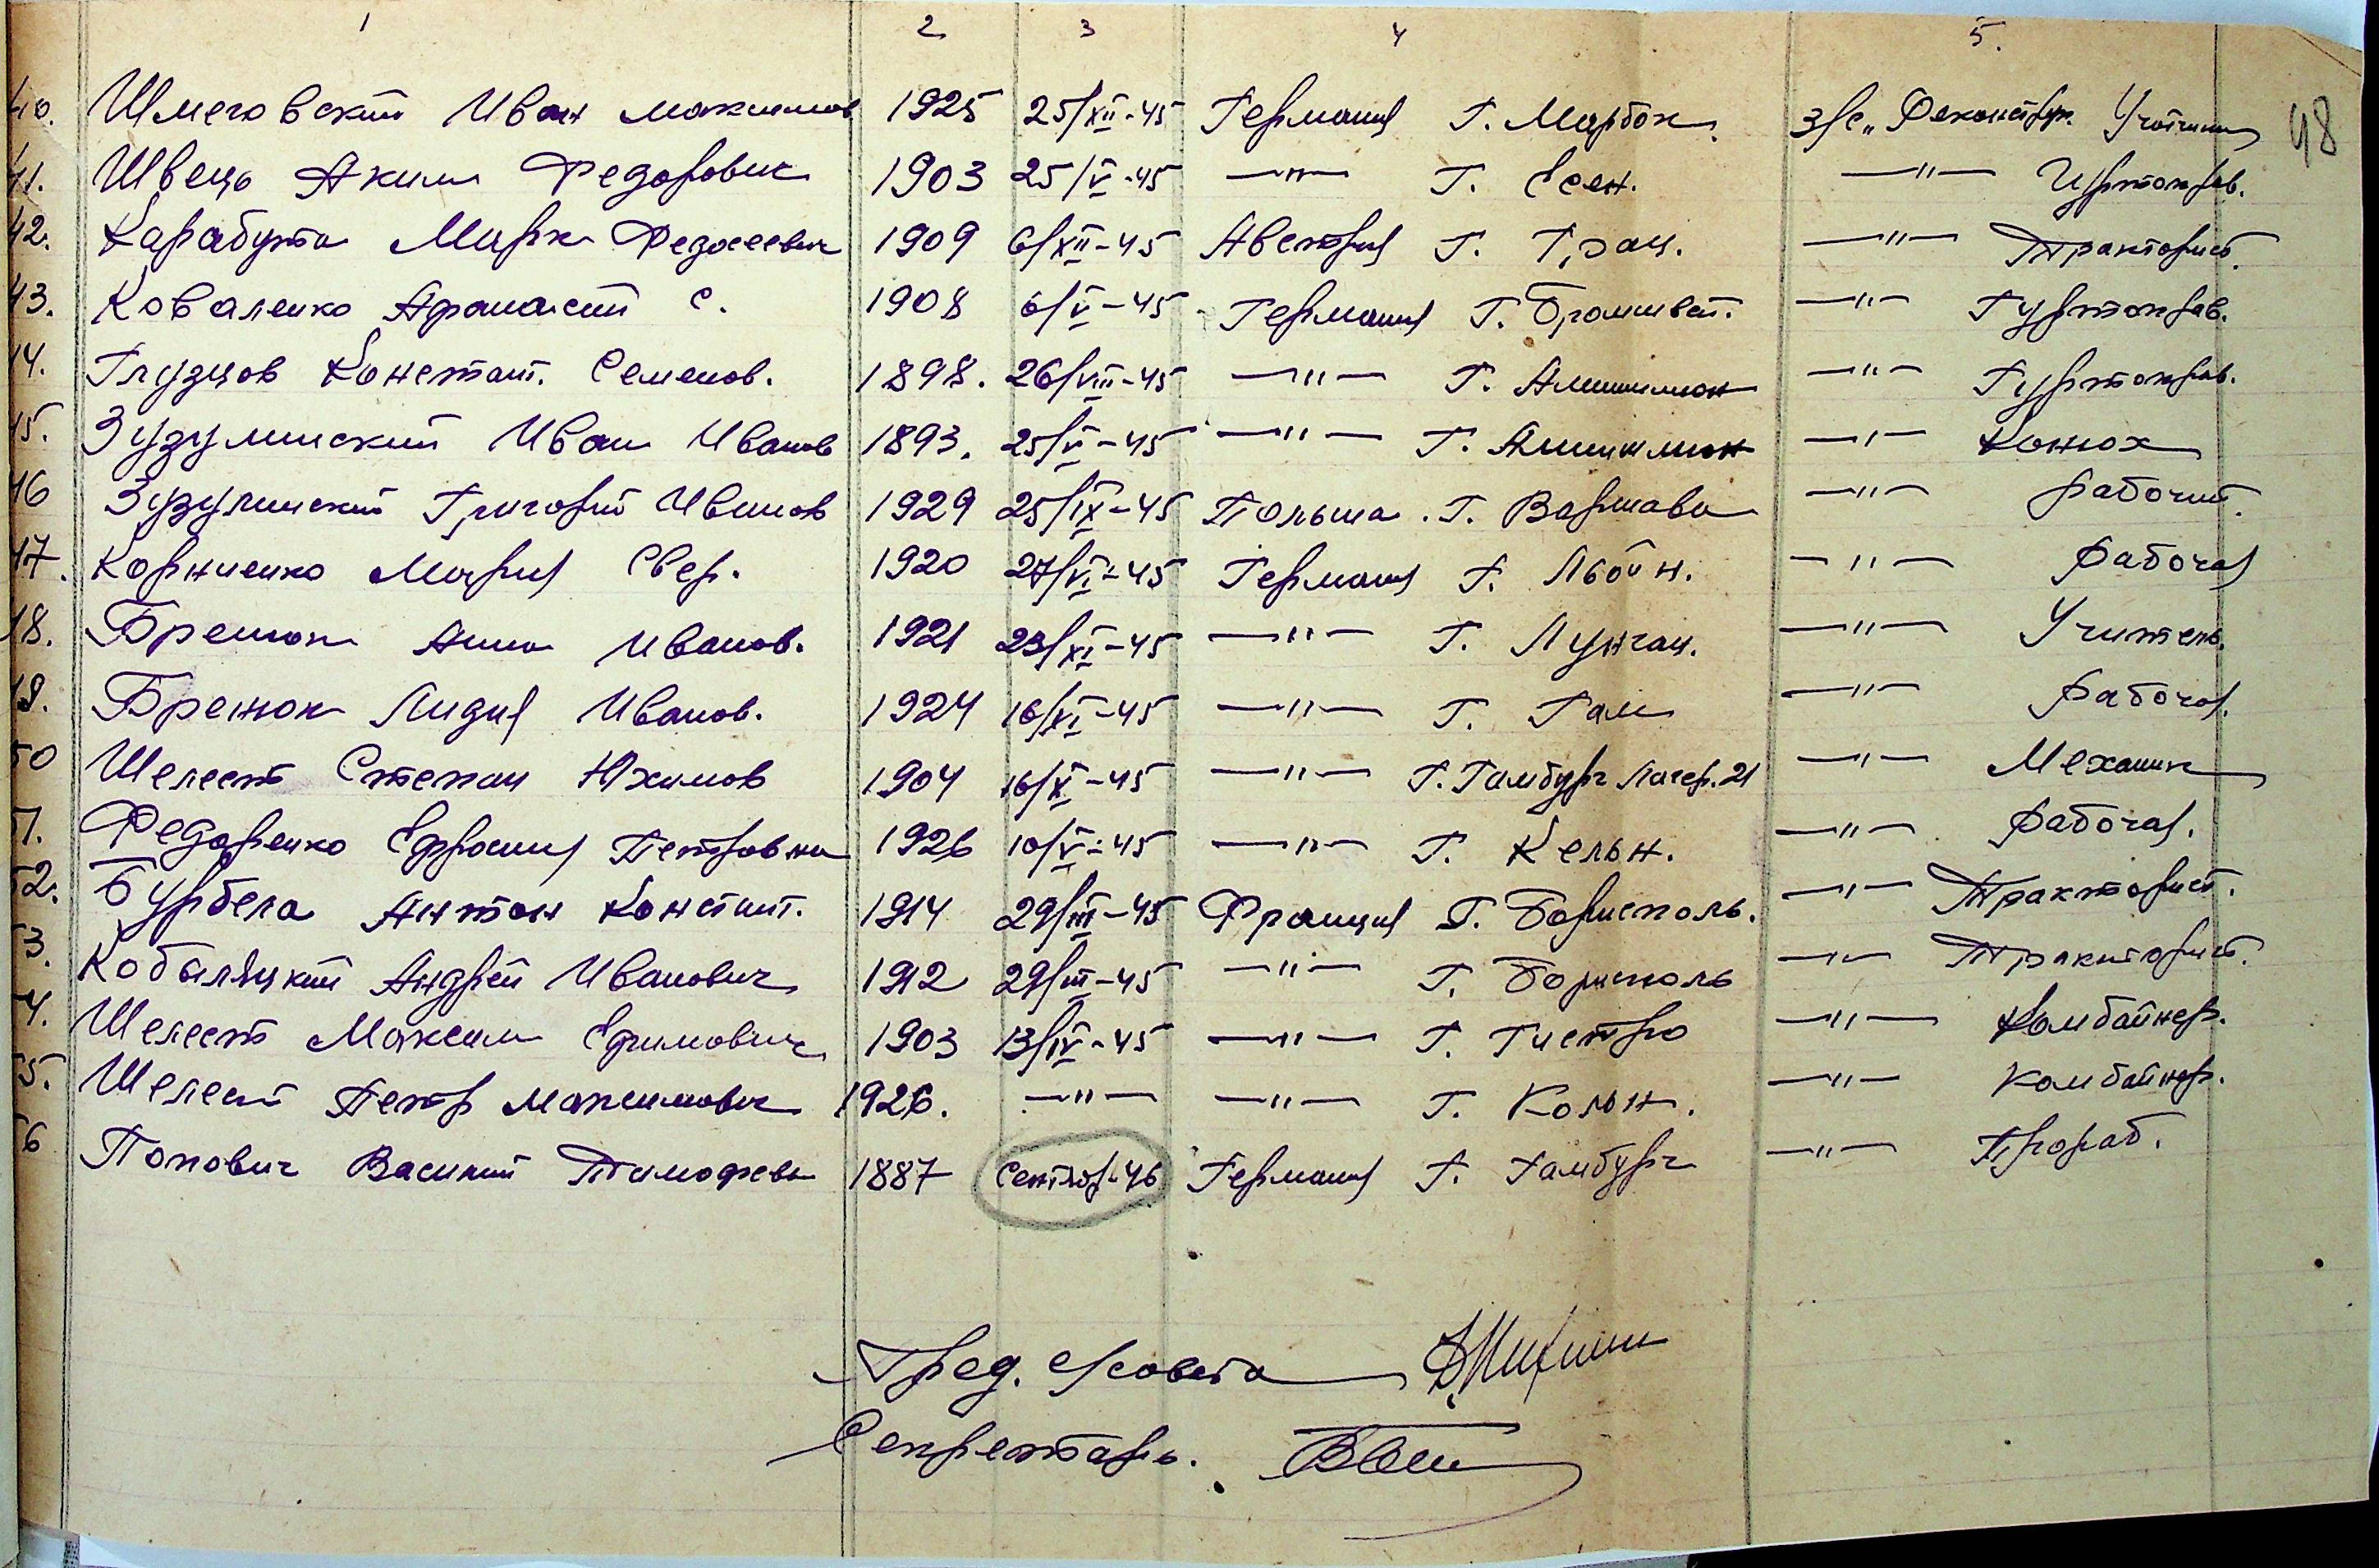 1 2 3 4 5.
48
40. Шмеговский Иван Максимов 1925 25/XII-45 Германия Г. Марбок. з/с "Реконструк.
41. Швець Аким Федорович 1903 25/V-45 —"— Г. Есен. —"— Гуртоправ.
42. Карабута Марк Федосеевич 1909 6/XII-45 Австрия Г. Грац. —"— Тракторист.
43. Коваленко Афанасий С. 1908 6/V-45 Германия Г. —"— Гуртоправ.
44. Глузцов Констант. Семенов. 1898. 26/VIII-45 —"— Г. —"— Гуртоправ.
45. Зузулинский Иван Иванов 1893. 25/V-45 —"— Г. —"— Конюх
46 Зузулинский Григорий Иванов 1929 25/IX-45 Польша. Г. Варшава —"— Рабочий.
47. Корниенко Мария Свер. 1920 27/VI-45 Германия Г. —"— Рабочая
48. Бренюк Анна Иванов. 1921 23/XI-45 —"— Г. Лунгац. —"— Учитель.
49. Бренюк Лидия Иванов. 1924 16/XI-45 —"— Г. Гам —"— Рабочая.
50 Шелест Степан Юхимов 1904 16/X-45 —"— Г. Гамбург Лагер. 21 —"— Механик
51. Федоренко Ефросиния Петровна 1926 10/V-45 —"— Г. Кельн. —"— Рабочая.
52. Бурбела Антон Констант. 1914 29/III-45 Франция Г. Борисполь. —"— Тракторист.
53. Кобаляцкий Андрей Иванович 1912 29/III-45 —"— Г. Борисполь —"— Тракторист.
54. Шелест Максим Ефимович 1903 13/IV-45 —"— Г. Гистрю —"— Комбайнер.
55. Шелест Петр Максимович 1926. —"— —"— Г. Кольн. —"— Комбайнер.
56 Попович Василий Тимофеев 1887 Сентябр-46 Германия Г. Гамбург —"— Прораб.
Пред. с/совета
Секретарь.